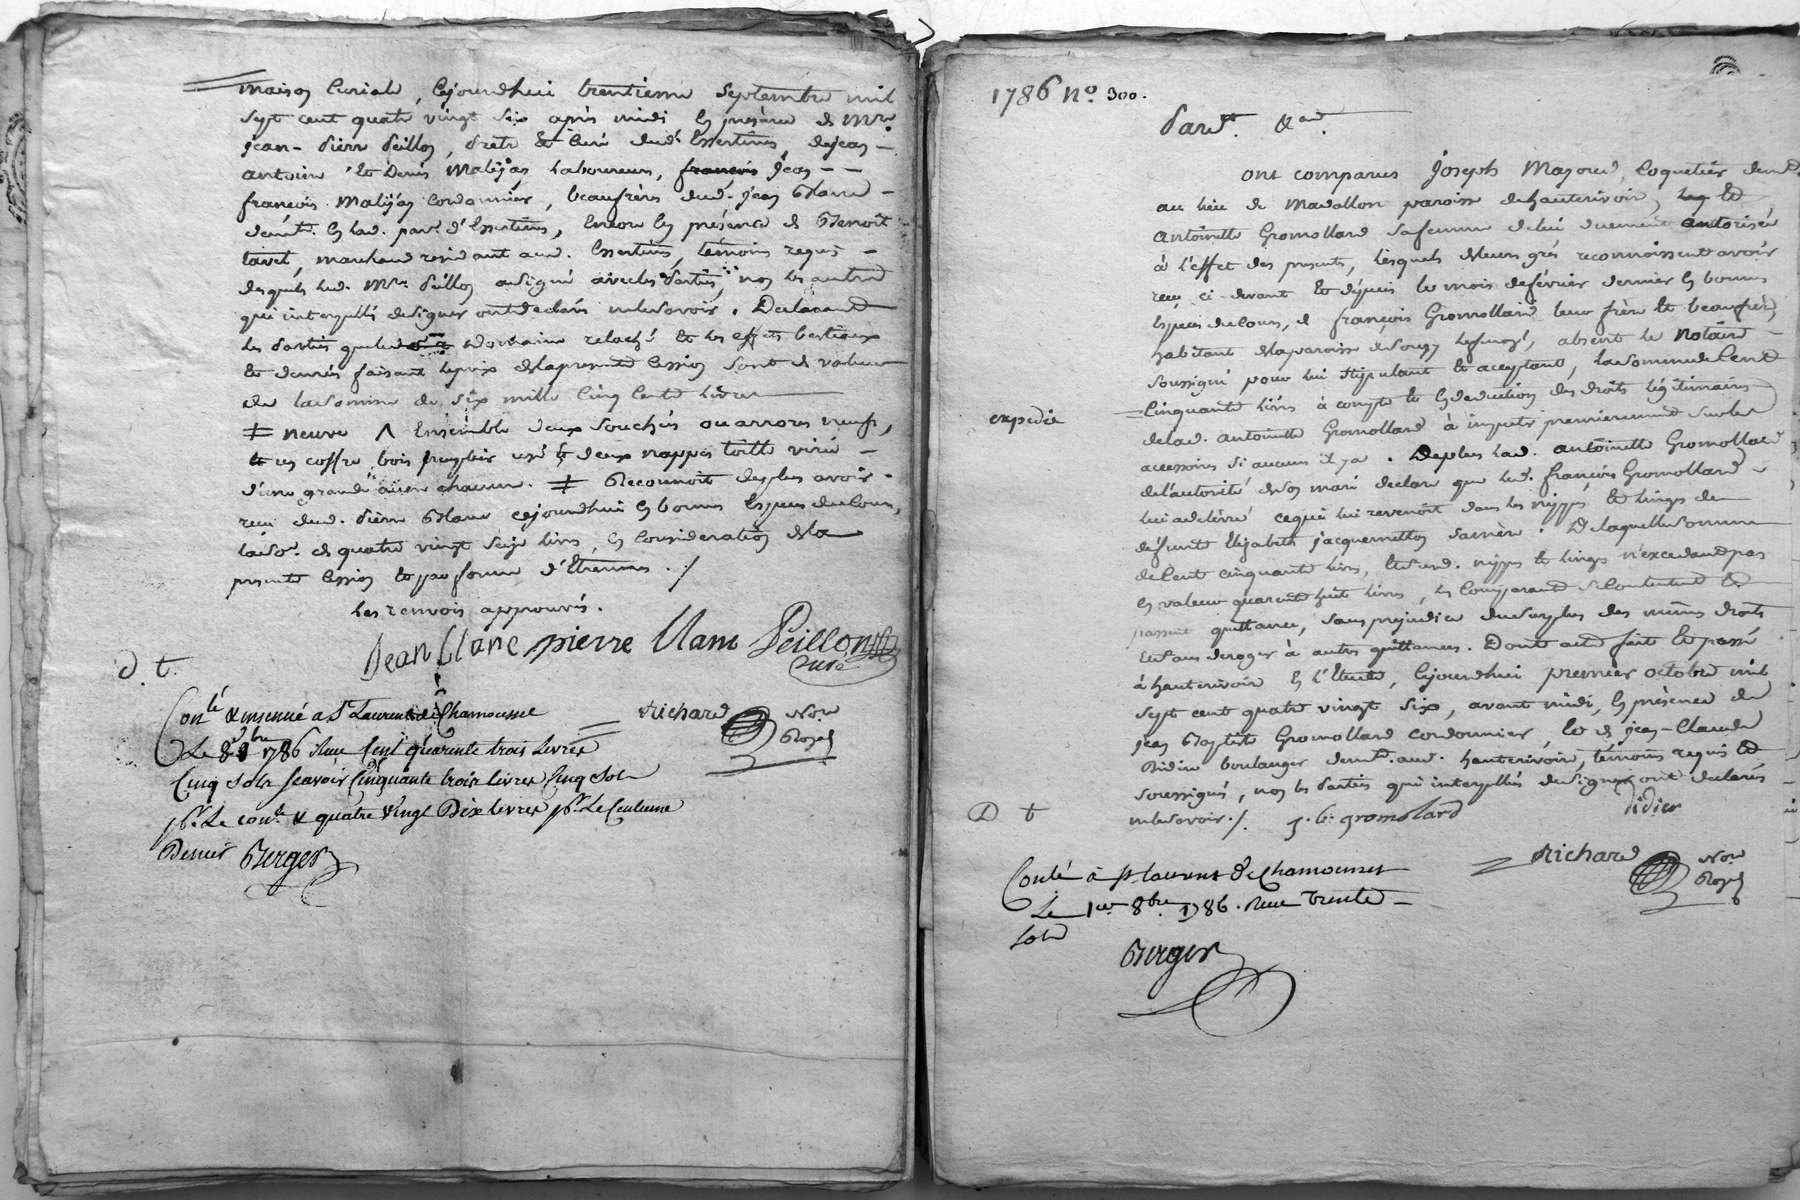 maison Curiale, cejourdhui trentieme septembre mil
sept cent quatre vingt six après midi En présence de Mre
jean-pierre peillon, pretre et Curé dud. Essertines, dejean
antoine et Denis Malijay laboureurs, françois jean
françois Malijay cordonnier, beaufrères dud. jean Blanc
demt. En lad. parr d'Essertines, Encore En présence de Benoit
tavel, marchand residant aud. Essertines, témoins requis
desquels led. Mre. peillon asigné avecles parties, non les autres
qui interpellés designer ontdeclaré nelesavoir. Declarant
les parties queled Domaine relaché et les effets bestiaux
et denrés faisant leprix delapresente Cession sont de valeur
de lasomme de six mille Cinq Cents livres
≠ neuve ∧ Ensemble deux souches ou arrores neufs,
et un coffre bois usé & deux nappes toille
d'une grande aune chacune. ≠ Reconnoit deplus avoir
recu dud. pierre Blanc cejourdhui En bonnes Especes deCours,
laSoe. de quatre vingt seize livres, En Consideration dela
presente Cession et par forme d'Etrennes ./
Les renvois approuvés.
Jean Blanc pierre blanc Peillon
Curé
D. t.
Conlé & insinué a St Laurent de Chamousset
Richard Nore
Royal
Le 8 8bre 1786 Reçu Cent quarente trois Livres
Cinq Sols scavoir Cinquante trois livres Cinq Sols
pr. Le conle. & quatre Vingt Dix livres pr. Le Centieme
Denier Berger
1786 No. 300.
Pardt. &a.
ont comparus Joseph Mazoud, Coquetier demt.
au lieu de Madollon paroisse dehauterivoir, et
Antoinette Gromollard safemme delui duement autorisée
à l'effet des presentes, lesquels deleurs grés reconnoissent avoir
reçu ci-devant et depuis le mois defévrier dernier En bonnes
Espèces deCours, de françois Gromollard leur frère et beaufrère,
habitant delaparoisse deSouzy , absent le Notaire
soussigné pour lui stipulant et acceptant, lasommedeCent
expediée
Cinquante livres à compte et Endeduction des droits légitimaires
delad. antoinette Gromollard à imputer premierement surles
accessoires si aucuns il y a. Deplus lad. antoinette Gromollard
del'autorité deson mari declare que led. françois Gromollard
lui adelivré cequi lui revenoit dans les nippes et linges de
défunte Elizabeth jacquemetton samère. Delaquellesomme
deCent cinquante livres, Ensemble nippes et linges n'excedantpas
En valeur quarente huit livres, les Comparants secontentent et
passent quittance, sans prejudice dusurplus des mêmes droits
Etsans deroger à autres quittances. Dont acte fait et passé
à hauterivoir En l'Etude, Cejourdhui premier octobre mil
sept cent quatre vingt six, avant midi, En présence de
jean Baptiste Gromollard cordonnier, et de jean-Claude
Didier boulanger demt. aud. hauterivoir, témoins requis et
soussignés, non les parties qui interpellés designer ont declarés
D t
nelesavoir ./. j. b. gromolard Didier
Richard Nore
Royal
Conlé à St laurent de Chamousset
Le 1er 8bre. 1786. Reçu trente
sols
Berger